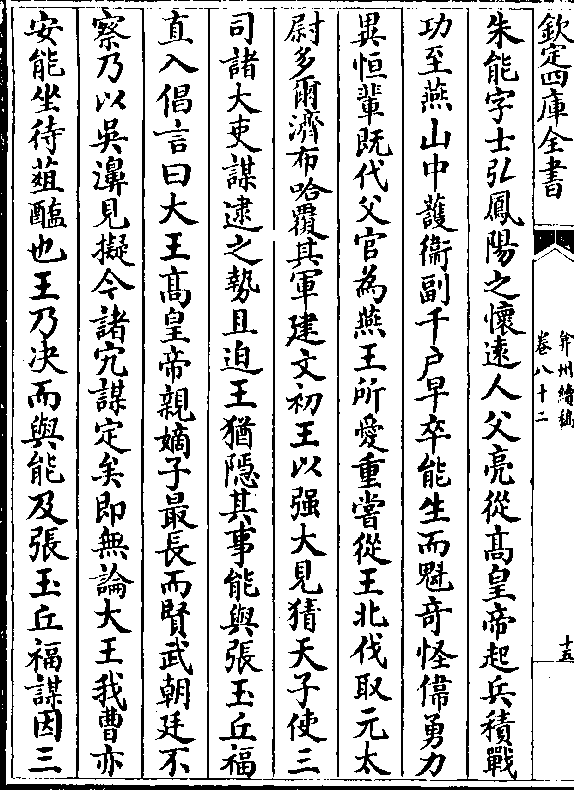 欽定四庫全書
弇州續稿
卷八十二
十五
朱能字士弘鳳陽之懷遠人父亮從髙皇帝起兵積戰
功至燕山中護衞副千户早卒能生而魁竒怪偉勇力
異恒輩既代父官為燕王所愛重嘗從王北伐取元太
尉多爾濟布哈覆其軍建文初王以强大見猜天子使三
司諸大吏謀逮之勢且迫王猶隠其事能與張玉丘福
直入倡言曰大王髙皇帝親嫡子最長而賢武朝廷不
察乃以吳濞見擬今諸宄謀定矣即無論大王我曹亦
安能坐待葅醢也王乃决而與能及張玉丘福謀因三